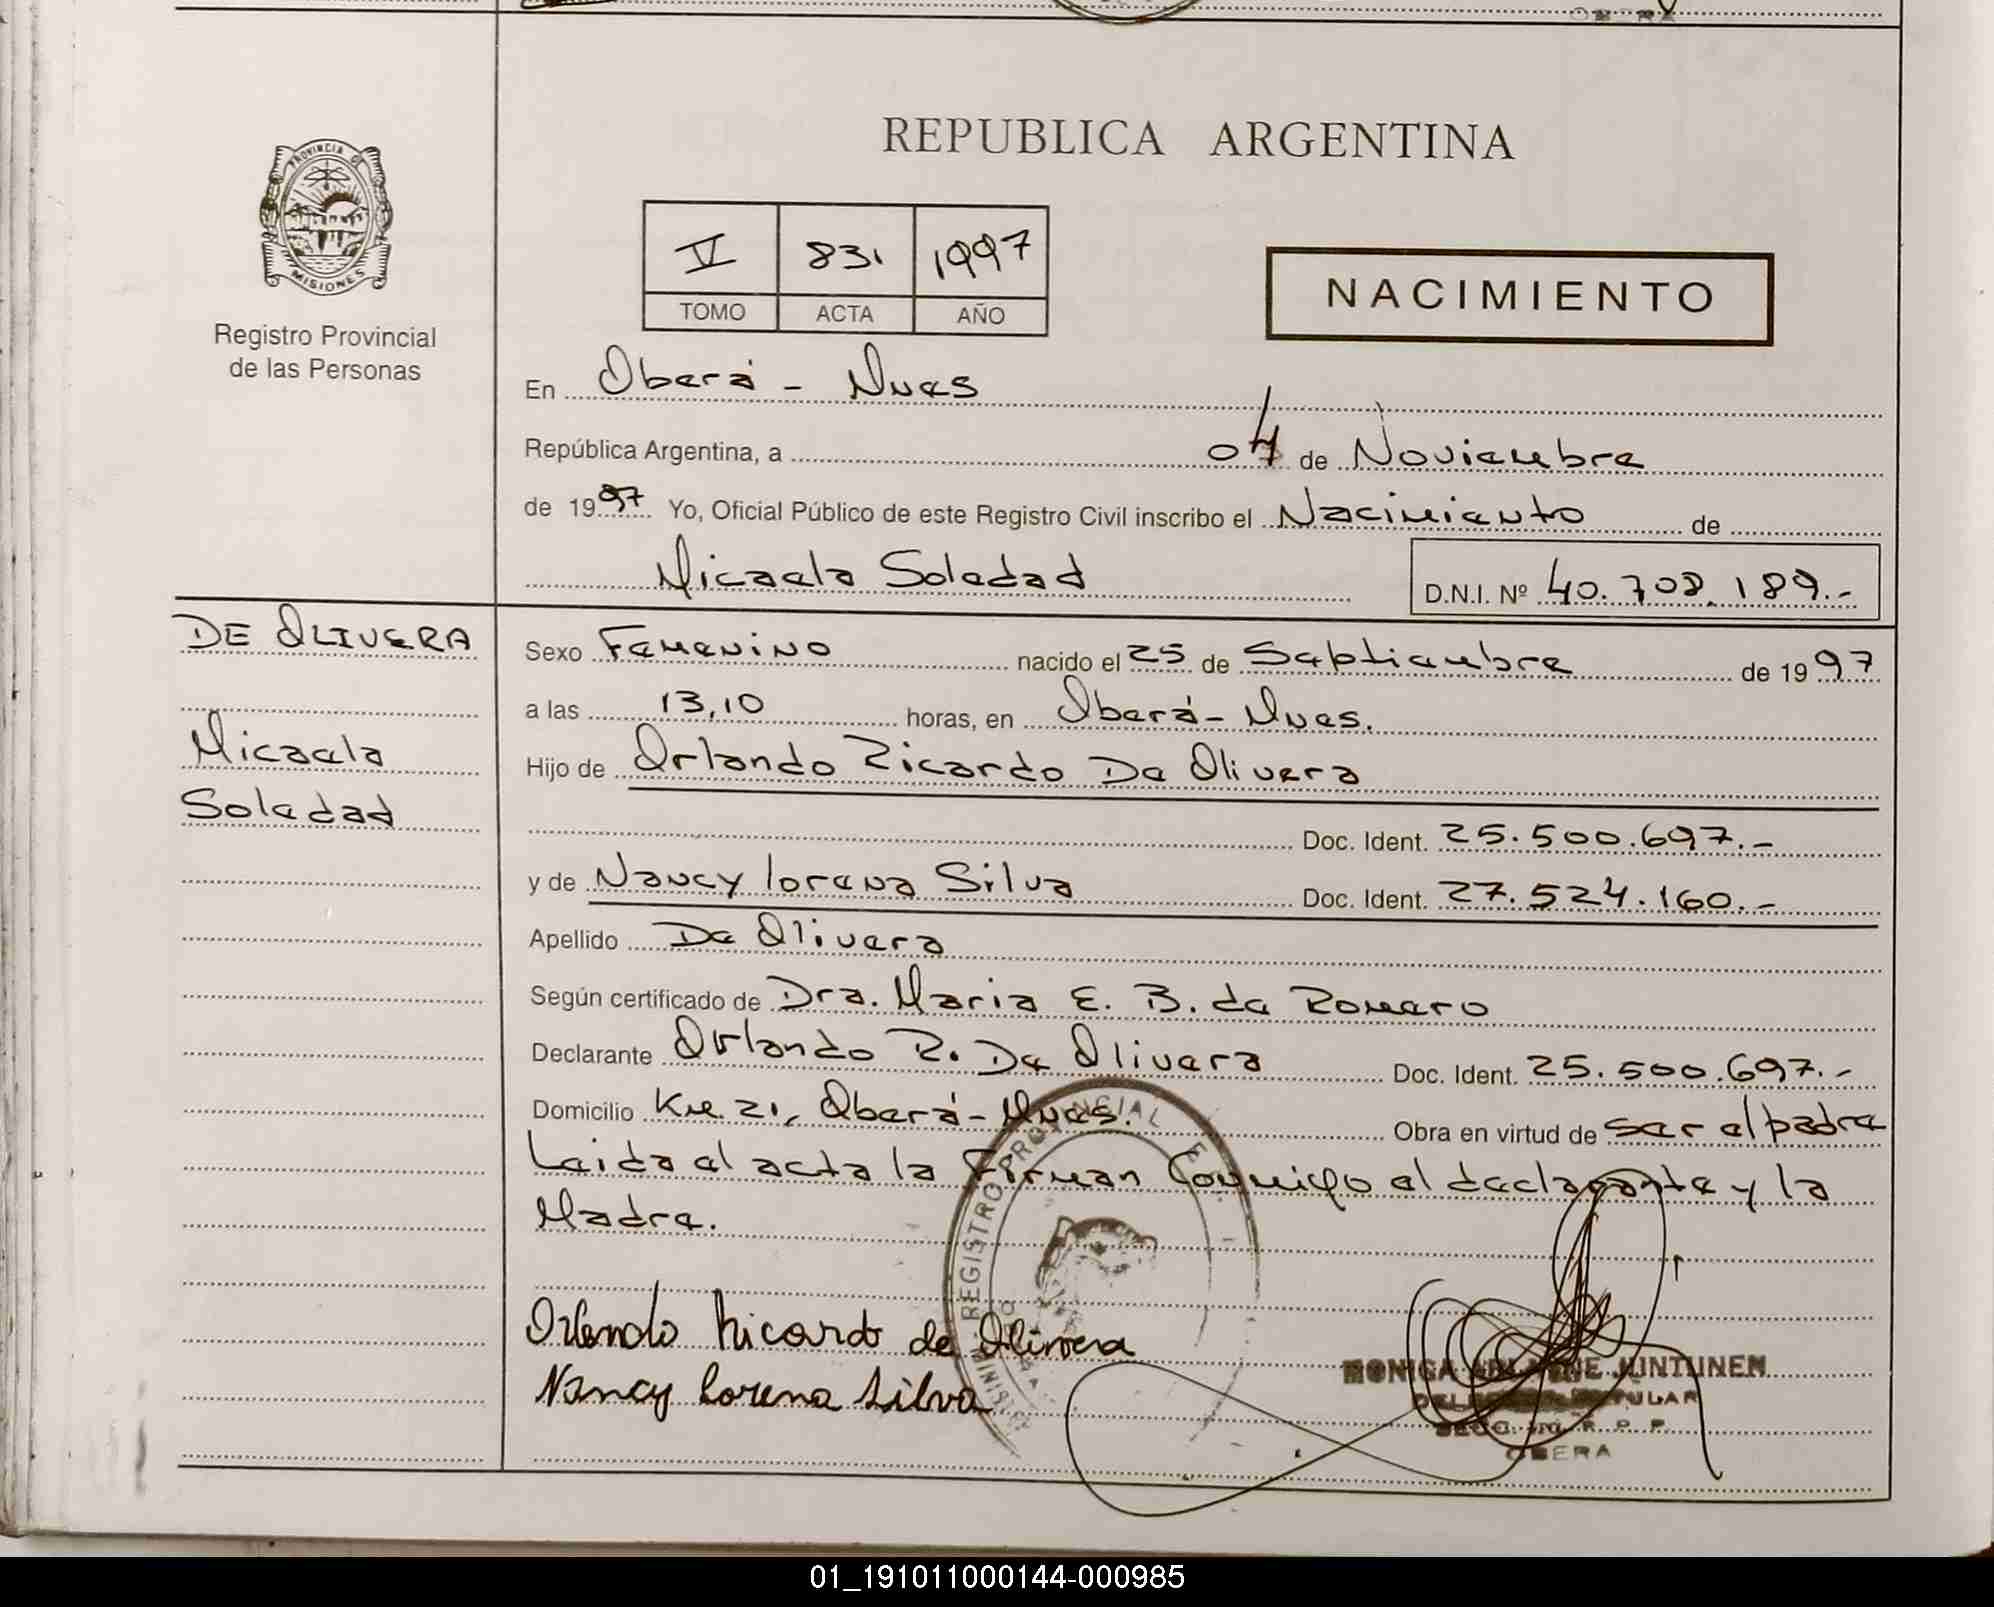 REPUBLICA ARGENTINA
PROVINCIA D
MISIONES
Registro Provincial
de las Personas
V 831 1997
TOMO ACTA AÑO
NACIMIENTO
En Oberá - Mnes
República Argentina, a 04 de Noviembre
de 1997 Yo, Oficial Público de este Registro Civil inscribo el Nacimiento de
Micaela Soledad D.N.I. Nº 40.708.189.-
DE OLIVERA
Micaela
Soledad
Sexo Femenino nacido el 25 de Septiembre de 1997
a las 13,10 horas, en Oberá - Mnes.
Hijo de Orlando Ricardo De Olivera
Doc. Ident. 25.500.697.-
y de Nancy lorena Silva Doc. Ident. 27.524.160.-
Apellido De Olivera
Según certificado de Dra. Maria E. B. de Romero
Declarante Orlando R. De Olivera Doc. Ident. 25.500.697.-
Domicilio Km. 21, Oberá - Mnes. Obra en virtud de ser el padre
Leida el acta la Firman Conmigo el declarante y la
Madre.
REGISTRO PROVINCIAL
Orlando Ricardo de Olivera
Nancy Lorena Silva
MONICA JUNTUNEN
OBERA
01_191011000144-000985